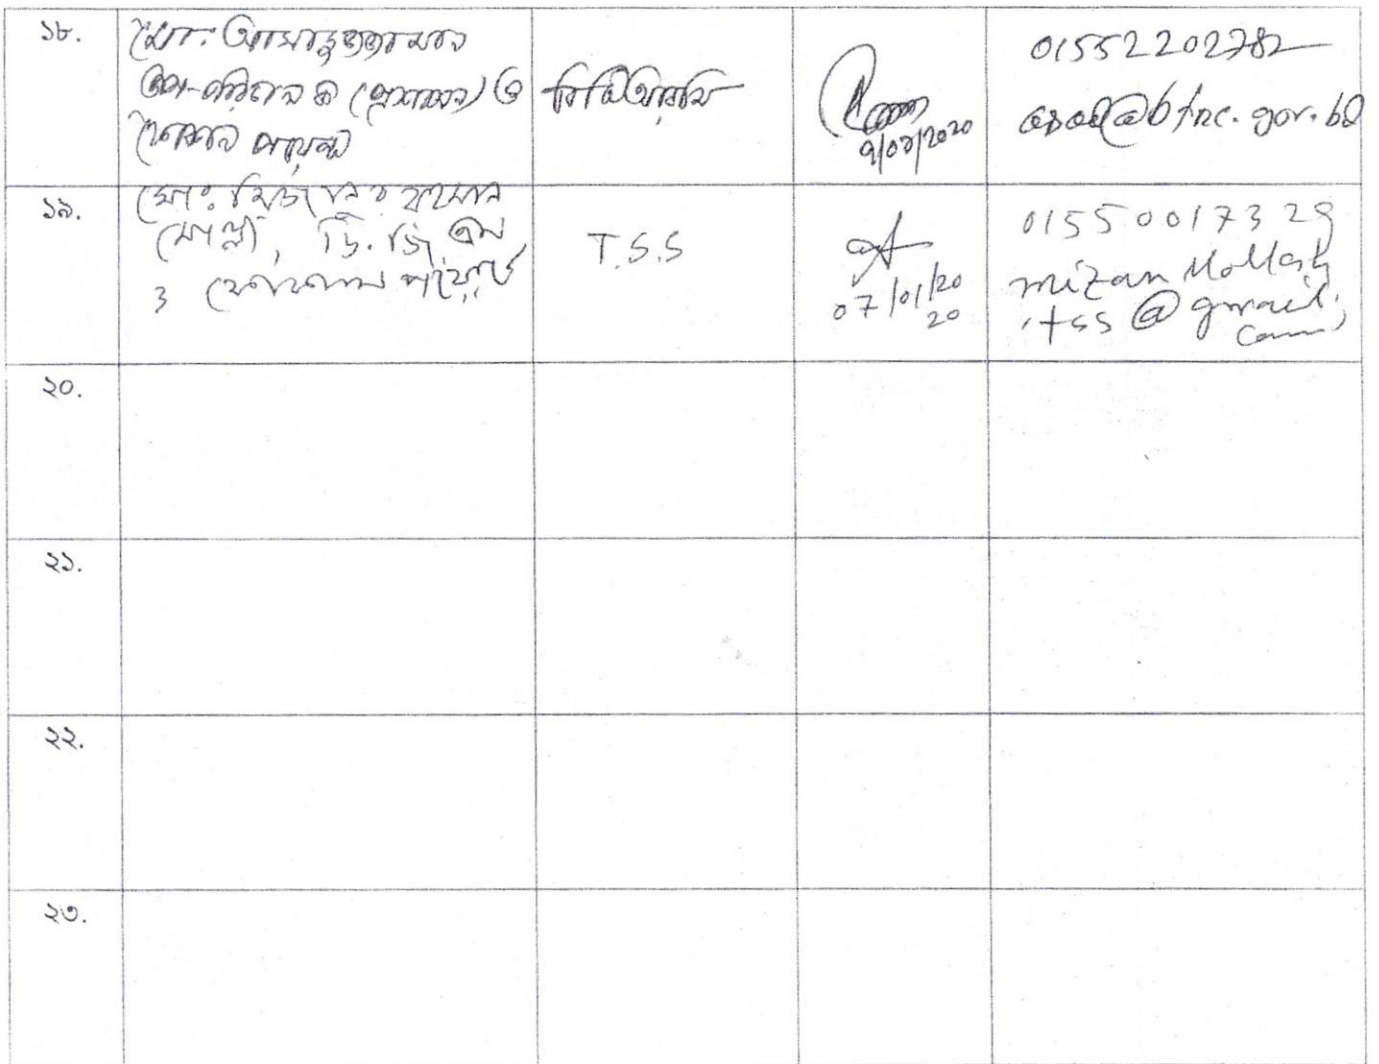 ১৮.
মো: আসাদুজ্জামান
উপ-পরিচালক (প্রশাসন) ও
ফোকাল পয়েন্ট
বিটিআরসি
01552202782
@btrc.gov.bd
১৯.
মো: মিজানুর রহমান
মোল্লা, ডি.জি.এম
ও ফোকাল পয়েন্ট
T.S.S
07/01/20
20
01550017329
mizan Mollah
.tss @ gmail.
com
২০.
২১.
২২.
২৩.